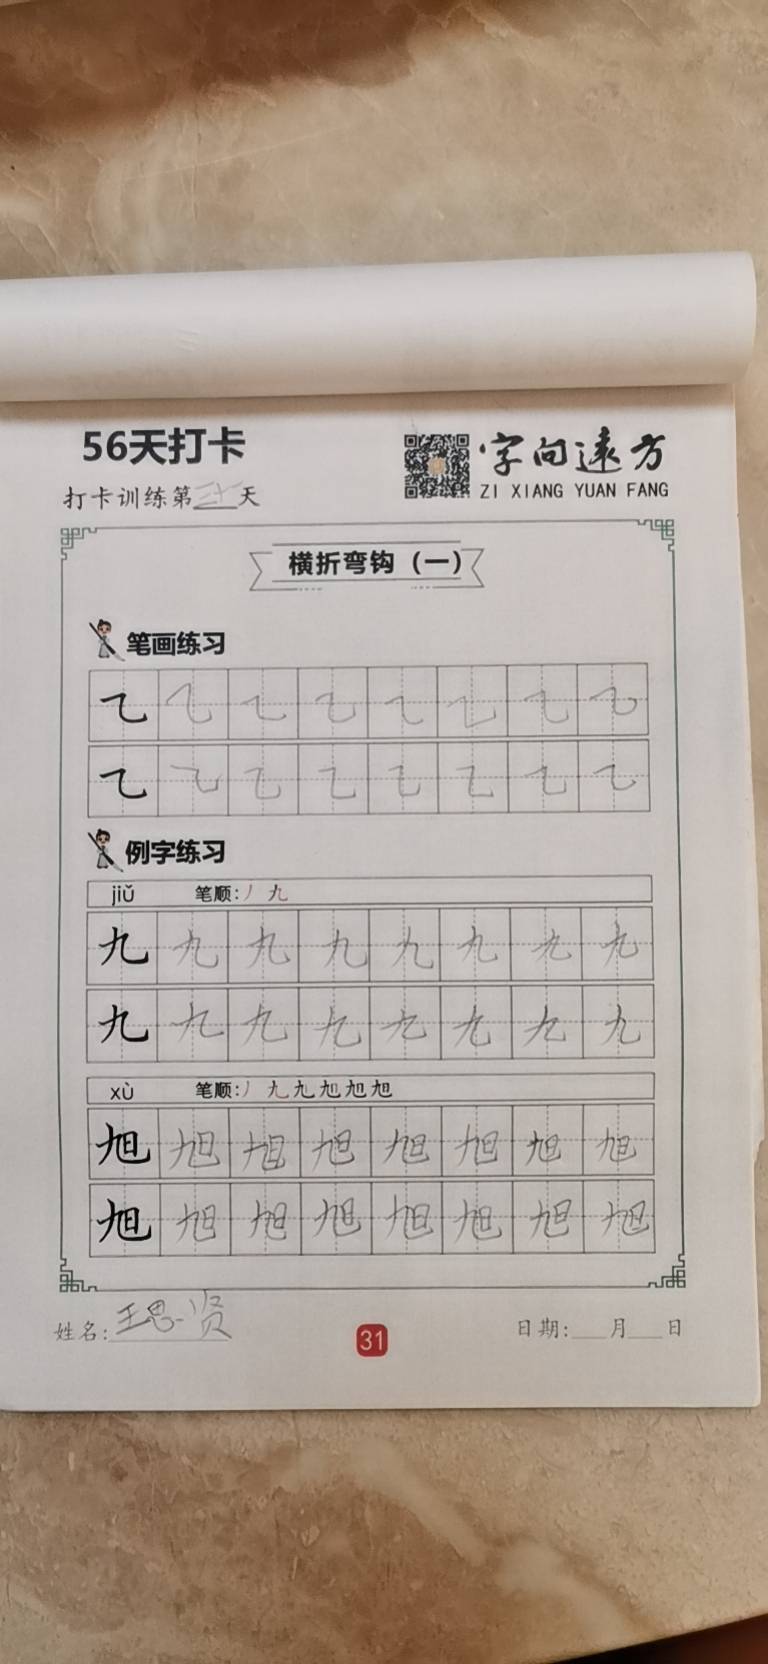 56天打卡
字向远方
ZI XIANG YUAN FANG
打卡训练第三十一天
横折弯钩（一）
笔画练习
㇈ ㇈ ㇈ ㇈ ㇈ ㇈ ㇈ ㇈
㇈ ㇈ ㇈ ㇈ ㇈ ㇈ ㇈ ㇈
例字练习
jiǔ 笔顺：丿 九
九 九 九 九 九 九 九 九
九 九 九 九 九 九 九 九
xù 笔顺：丿 九 九 旭 旭 旭
旭 旭 旭 旭 旭 旭 旭 旭
旭 旭 旭 旭 旭 旭 旭 旭
姓名：王思贤
31
日期：___月___日